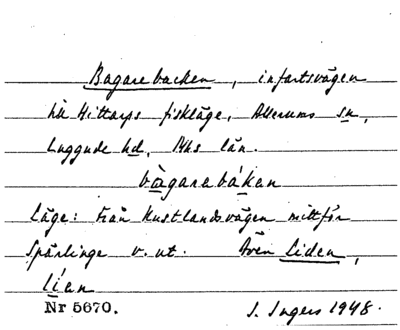 Bagarebacken, infartsvägen
till Hittarps fiskläge, Allerums sn,
Luggude hd, Mhs län.
bàgarebákan
Läge: Från Kustlandsvägen mittför
Spärlinge v. ut. Även Liden,
lían
Nr 5670. I. Ingers 1948.